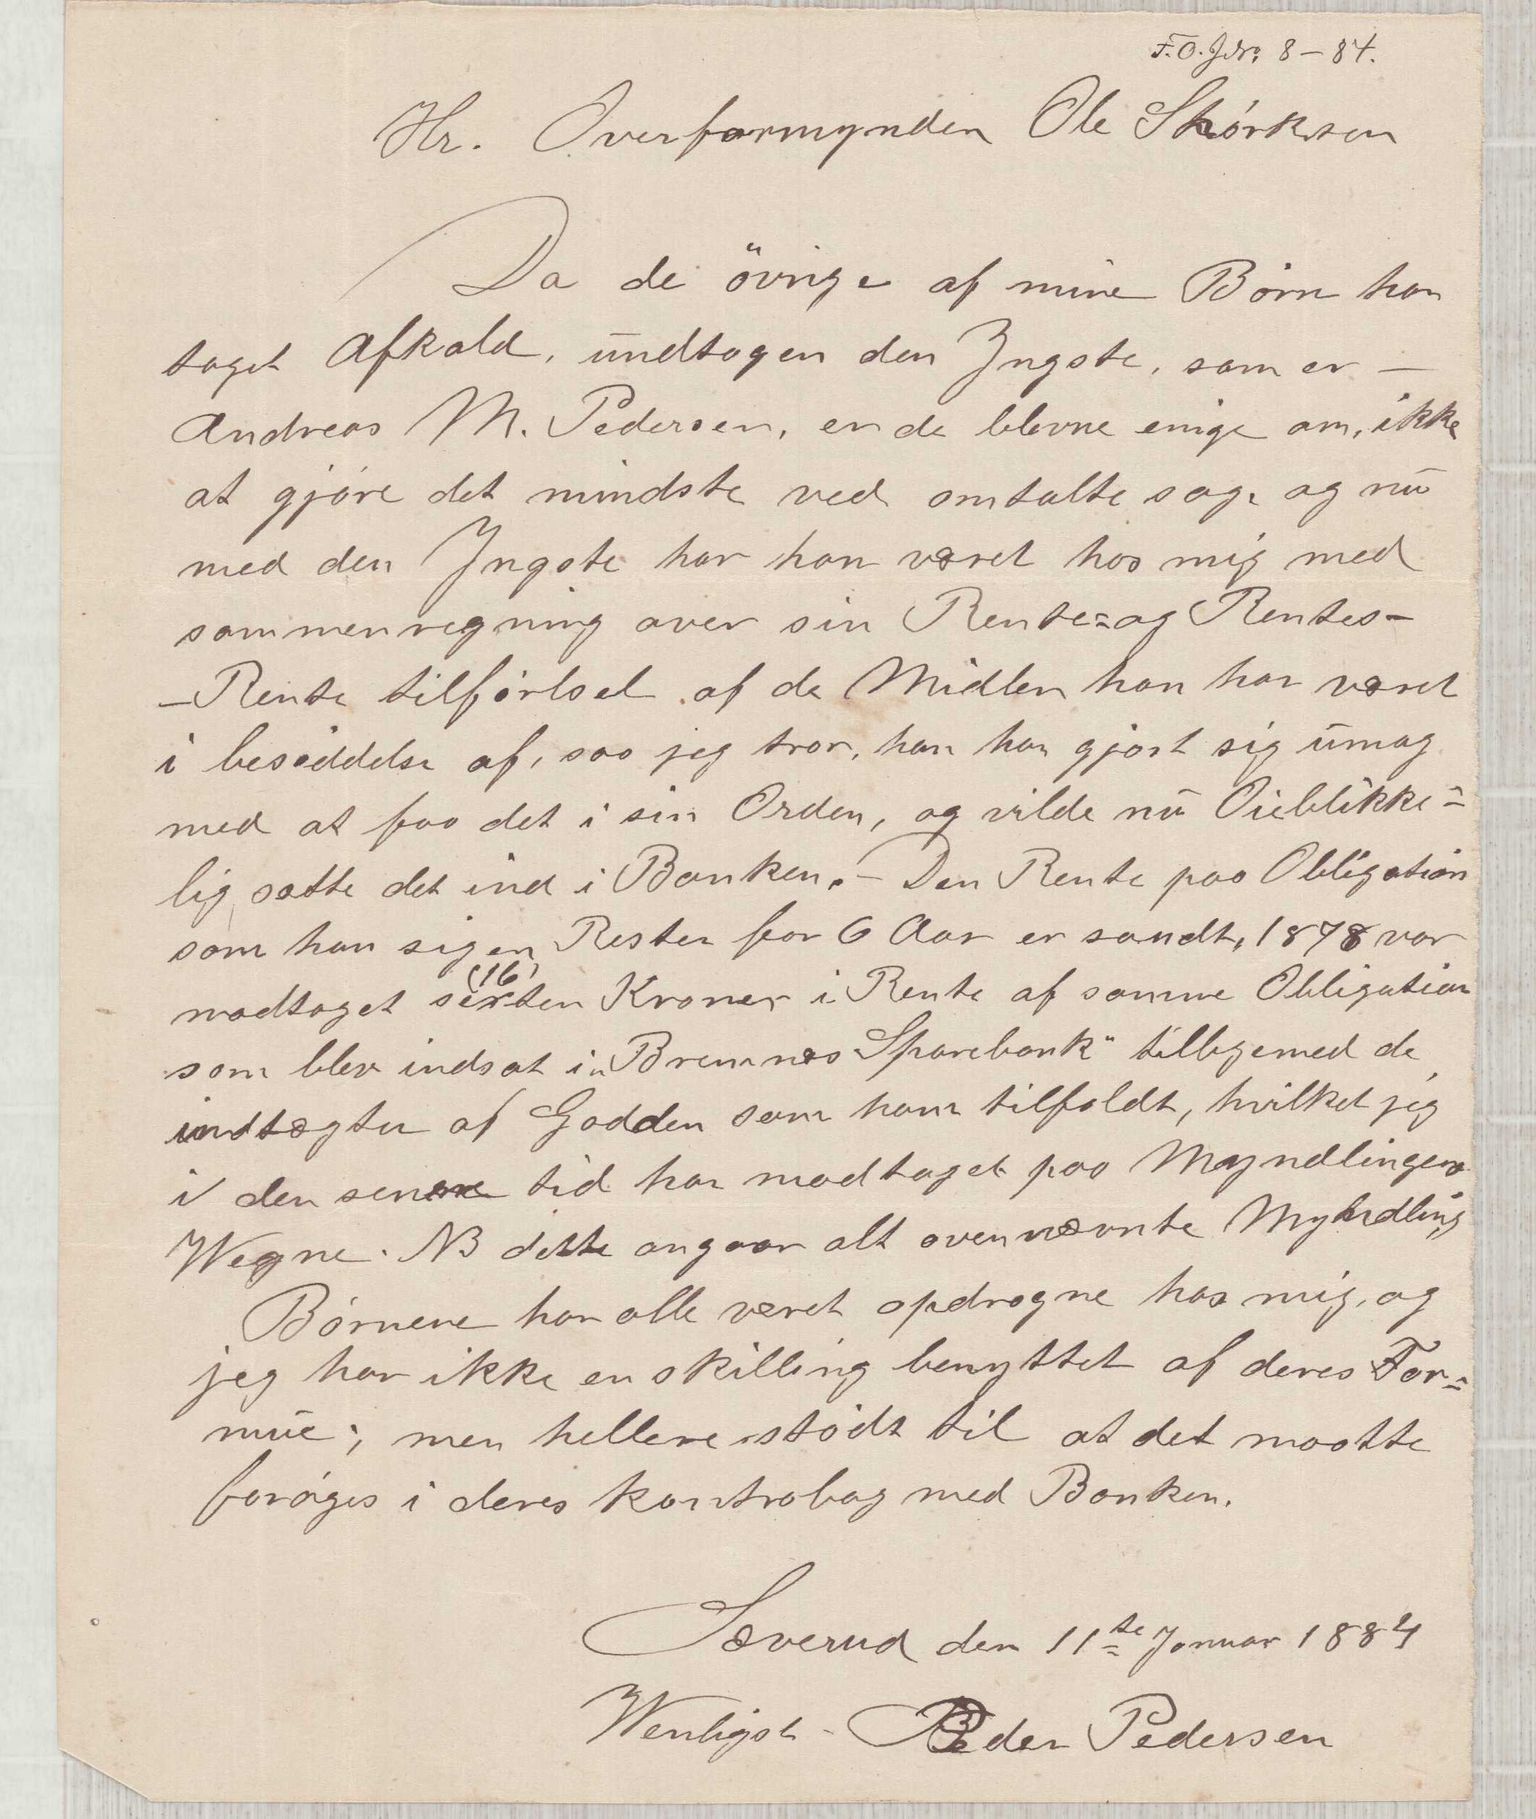 F.O. Jdr. 8 – 84.
Hr. Overformynder Ole Skórksen
Da de övrige af mine Børn har
taget Afkald, undtagen den Yngste, som er –
Andreas M. Pedersen, er de blevne enige om, ikke
at gjøre det mindste ved omtalte sag, og nu
med den Yngste har han været hos mig med
sammenregning over sin Rente= og Rentes–
–Rente tilførlsel af de Midler han har været
i besiddelse af, saa jeg tror, han har gjort sig umag
med at faa det i sin Orden, og vilde nu Øieblikke=
lig satte det ind i Banken. – Den Rente paa Obligation
som han siger Rester for 6 Aar er sandt, 1878 var
modtaget sexten (16) Kroner i Rente af samme Obligation
som blev indsat i „Bremnes Sparebank“ tilligemed de
indtægter af Gaarden som ham tilfaldt, hvilket jeg
i den senere tid har modtaget paa Myndlingens
Wegne. NB dette angaar alt ovennævnte Myndling
Børnene har alle været opdragne hos mig, og
jeg har ikke en skilling benyttet af deres For=
mue; men hellere stødt til at det maatte
forøges i deres kontrabog med Banken.
Sæverud den 11te Januar 1884
Wenligst – Peder Pedersen